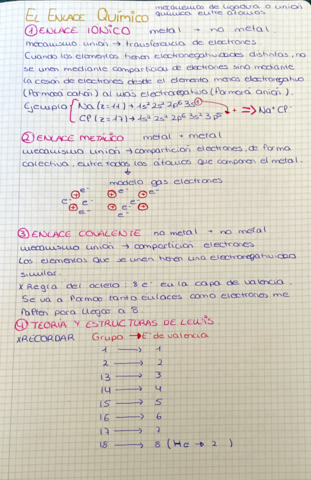 EL ENLACE QUÍMICO mecanismo de ligadura o unión
química entre átomos
① ENLACE IÓNICO metal + no metal
mecanismo unión → transferencia de electrones
Cuando los elementos tienen electronegatividades distintas, no
se unen mediante compartición de electrones sino mediante
la cesión de electrones desde el elemento menos electronegativo
(formará catión) al más electronegativo (formará anión).
Ejemplo Na (z=11) → 1s² 2s² 2p⁶ 3s¹
Cl (z=17) → 1s² 2s² 2p⁶ 3s² 3p⁵ + ⇒ Na⁺Cl⁻
② ENLACE METÁLICO metal + metal
mecanismo unión → compartición electrones, de forma
colectiva, entre todos los átomos que componen el metal.
↓
modelo gas electrones
e⁻ e⁻ e⁻
⊕ ⊕ ⊕
e⁻ ⊕ e⁻ ⊕ e⁻ ⊕
③ ENLACE COVALENTE no metal + no metal
mecanismo unión → compartición electrones
Los elementos que se unen tienen una electronegatividad
similar.
* Regla del octeto: 8 e⁻ en la capa de valencia.
Se va a formar tanto enlaces como electrones me
falten para llegar a 8.
④ TEORÍA Y ESTRUCTURAS DE LEWIS
*RECORDAR Grupo → E⁻ de valencia
1 → 1
2 → 2
13 → 3
14 → 4
15 → 5
16 → 6
17 → 7
18 → 8 (He → 2)